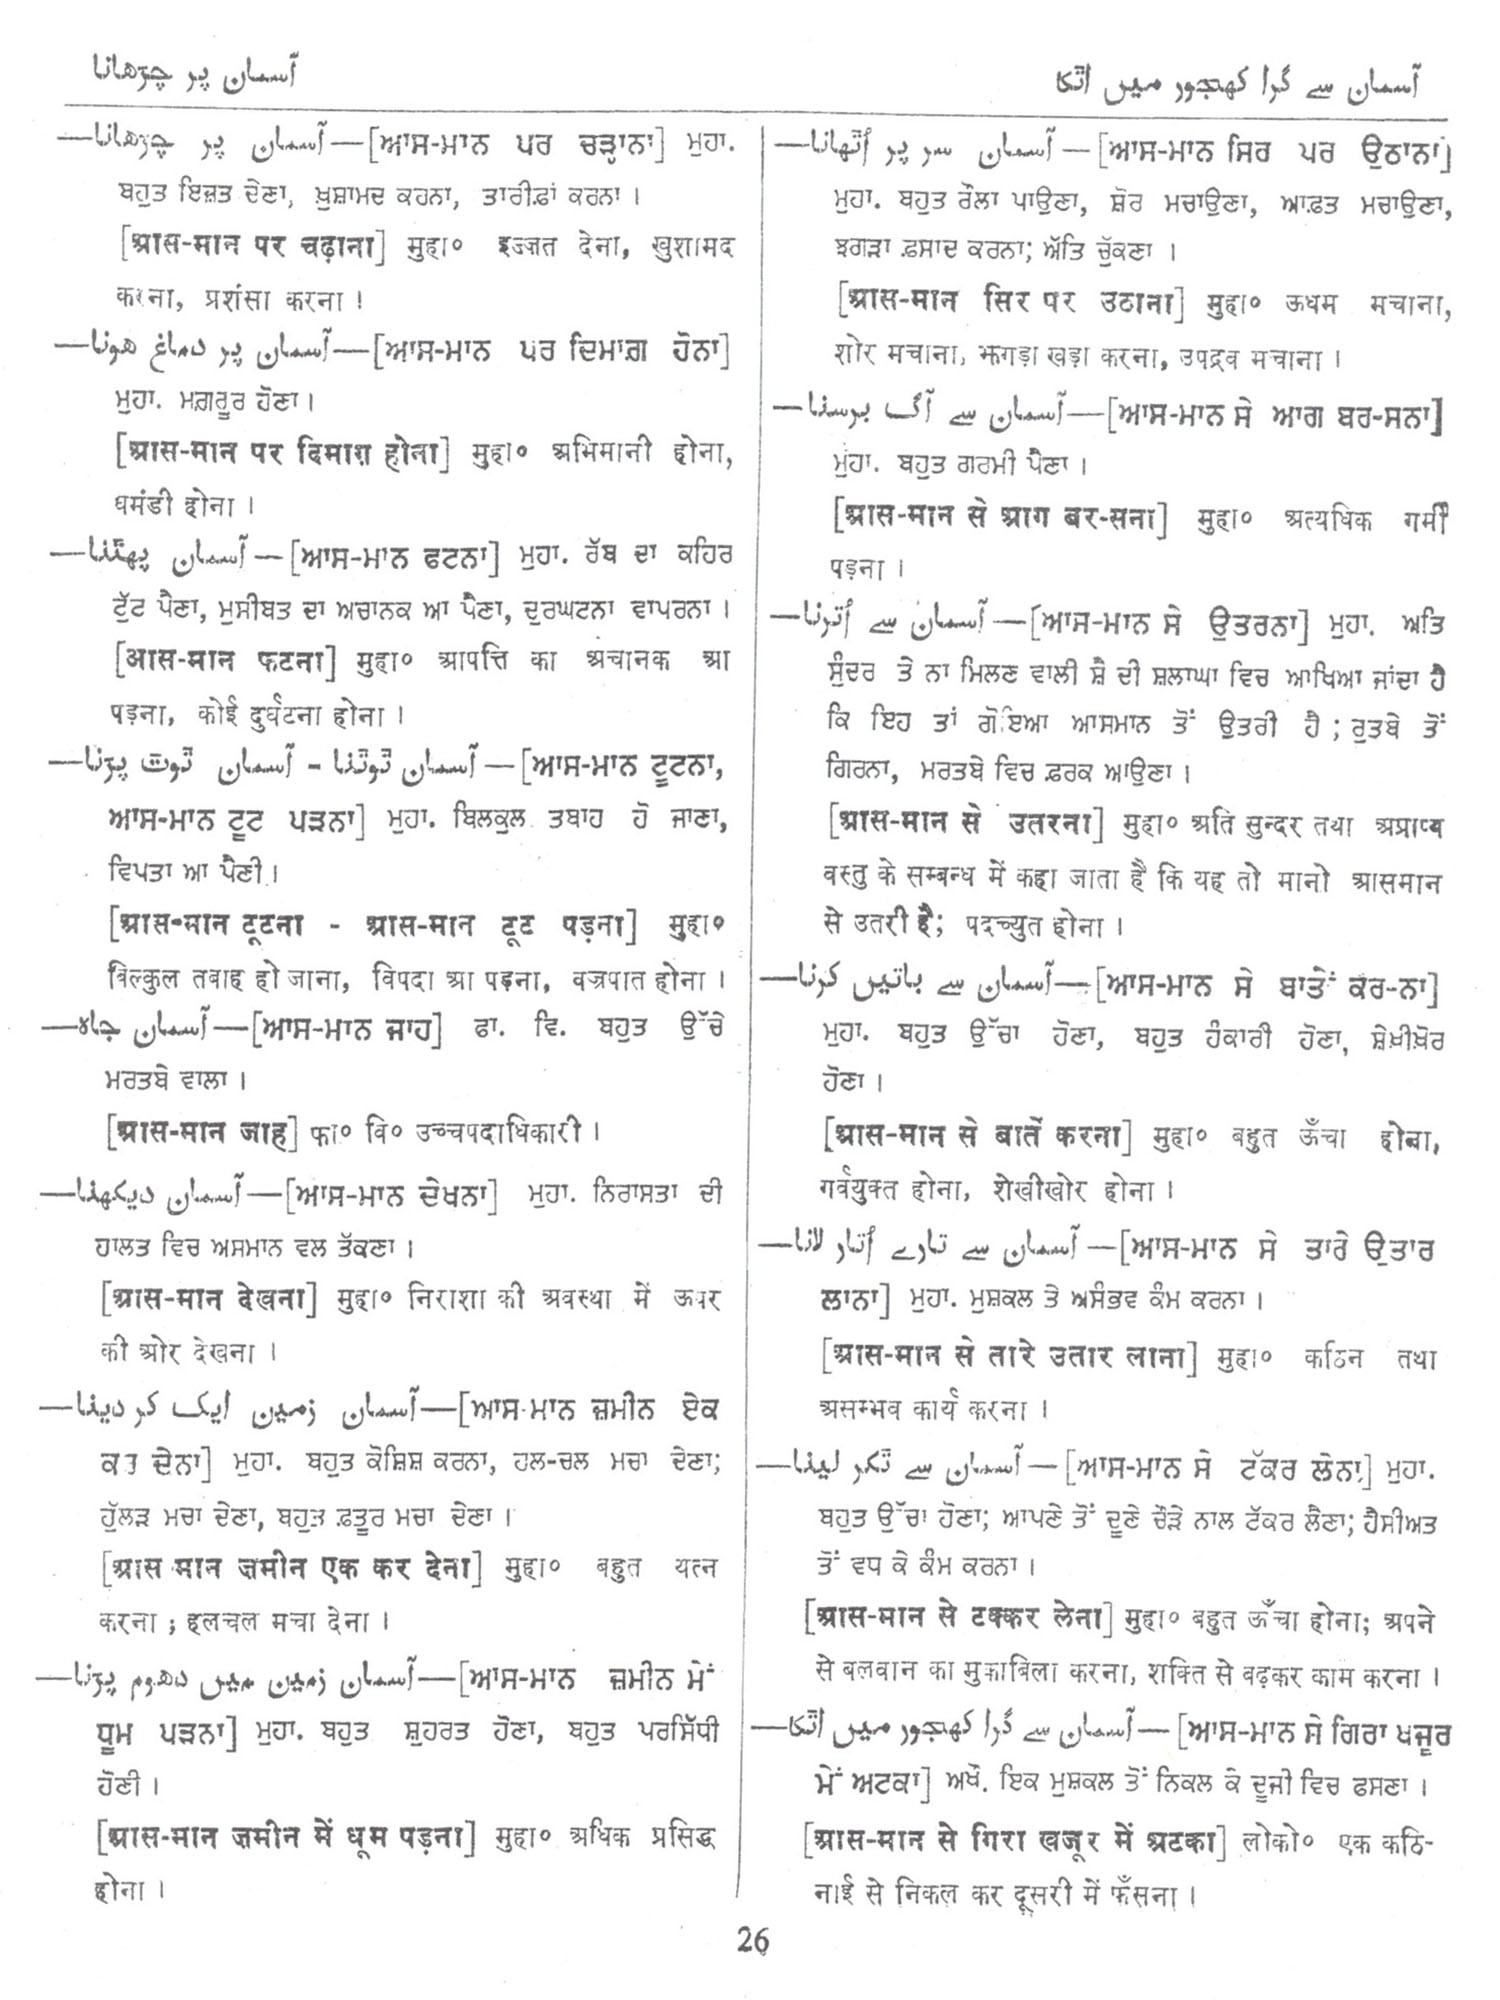 آسمان پر چڑھانا
آسمان سے گرا کھجور میں اٹکا
—آسمان پر چڑھانا—[ਆਸ-ਮਾਨ ਪਰ ਚੜ੍ਹਾਨਾ] ਮੁਹਾ.
ਬਹੁਤ ਇਜ਼ਤ ਦੇਣਾ, ਖ਼ੁਸ਼ਾਮਦ ਕਰਨਾ, ਤਾਰੀਫ਼ਾਂ ਕਰਨਾ ।
[आस-मान पर चढ़ाना] मुहा० इज्जत देना, खुशामद
करना, प्रशंसा करना !
—آسمان پر دماغ ہونا—[ਆਸ-ਮਾਨ ਪਰ ਦਿਮਾਗ਼ ਹੋਨਾ]
ਮੁਹਾ. ਮਗ਼ਰੂਰ ਹੋਣਾ ।
[आस-मान पर दिमाग़ होना] मुहा० अभिमानी होना,
घमंडी होना ।
—آسمان پھٹنا—[ਆਸ-ਮਾਨ ਫਟਨਾ] ਮੁਹਾ. ਰੱਬ ਦਾ ਕਹਿਰ
ਟੁੱਟ ਪੈਣਾ, ਮੁਸੀਬਤ ਦਾ ਅਚਾਨਕ ਆ ਪੈਣਾ, ਦੁਰਘਟਨਾ ਵਾਪਰਨਾ ।
[आस-मान फटना] मुहा० आपत्ति का अचानक आ
पड़ना, कोई दुर्घटना होना ।
—آسمان ٹوٹنا - آسمان ٹوٹ پڑنا—[ਆਸ-ਮਾਨ ਟੂਟਨਾ,
ਆਸ-ਮਾਨ ਟੂਟ ਪੜਨਾ] ਮੁਹਾ. ਬਿਲਕੁਲ ਤਬਾਹ ਹੋ ਜਾਣਾ,
ਵਿਪਤਾ ਆ ਪੈਣੀ ।
[आस-मान टूटना - आस-मान टूट पड़ना] मुहा०
बिल्कुल तबाह हो जाना, विपदा आ पड़ना, वज्रपात होना ।
—آسمان جاہ—[ਆਸ-ਮਾਨ ਜਾਹ] ਫਾ. ਵਿ. ਬਹੁਤ ਉੱਚੇ
ਮਰਤਬੇ ਵਾਲਾ ।
[आस-मान जाह] फा० वि० उच्चपदाधिकारी ।
—آسمان دیکھنا—[ਆਸ-ਮਾਨ ਦੇਖਨਾ] ਮੁਹਾ. ਨਿਰਾਸਤਾ ਦੀ
ਹਾਲਤ ਵਿਚ ਅਸਮਾਨ ਵਲ ਤੱਕਣਾ ।
[आस-मान देखना] मुहा० निराशा की अवस्था में ऊपर
की ओर देखना ।
—آسمان زمین ایک کر دینا—[ਆਸ-ਮਾਨ ਜ਼ਮੀਨ ਏਕ
ਕਰ ਦੇਨਾ] ਮੁਹਾ. ਬਹੁਤ ਕੋਸ਼ਿਸ਼ ਕਰਨਾ, ਹਲ-ਚਲ ਮਚਾ ਦੇਣਾ;
ਹੁੱਲੜ ਮਚਾ ਦੇਣਾ, ਬਹੁਤ ਫ਼ਤੂਰ ਮਚਾ ਦੇਣਾ ।
[आस-मान ज़मीन एक कर देना] मुहा० बहुत यत्न
करना ; हलचल मचा देना ।
—آسمان زمین میں دھوم پڑنا—[ਆਸ-ਮਾਨ ਜ਼ਮੀਨ ਮੇਂ
ਧੂਮ ਪੜਨਾ] ਮੁਹਾ. ਬਹੁਤ ਸ਼ੁਹਰਤ ਹੋਣਾ, ਬਹੁਤ ਪਰਸਿੱਧੀ
ਹੋਣੀ ।
[आस-मान ज़मीन में धूम पड़ना] मुहा० अधिक प्रसिद्ध
होना ।
—آسمان سر پر اُٹھانا—[ਆਸ-ਮਾਨ ਸਿਰ ਪਰ ਉਠਾਨਾ]
ਮੁਹਾ. ਬਹੁਤ ਰੌਲਾ ਪਾਉਣਾ, ਸ਼ੋਰ ਮਚਾਉਣਾ, ਆਫ਼ਤ ਮਚਾਉਣਾ,
ਝਗੜਾ ਫ਼ਸਾਦ ਕਰਨਾ; ਅੱਤਿ ਚੁੱਕਣਾ ।
[आस-मान सिर पर उठाना] मुहा० ऊधम मचाना,
शोर मचाना, झगड़ा खड़ा करना, उपद्रव मचाना ।
—آسمان سے آگ برسنا—[ਆਸ-ਮਾਨ ਸੇ ਆਗ ਬਰ-ਸਨਾ]
ਮੁਹਾ. ਬਹੁਤ ਗਰਮੀ ਪੈਣਾ ।
[आस-मान से आग बर-सना] मुहा० अत्यधिक गर्मी
पड़ना ।
—آسمان سے اُترنا—[ਆਸ-ਮਾਨ ਸੇ ਉਤਰਨਾ] ਮੁਹਾ. ਅਤਿ
ਸੁੰਦਰ ਤੇ ਨਾ ਮਿਲਣ ਵਾਲੀ ਸ਼ੈ ਦੀ ਸ਼ਲਾਘਾ ਵਿਚ ਆਖਿਆ ਜਾਂਦਾ ਹੈ
ਕਿ ਇਹ ਤਾਂ ਗੋਇਆ ਆਸਮਾਨ ਤੋਂ ਉਤਰੀ ਹੈ ; ਰੁਤਬੇ ਤੋਂ
ਗਿਰਨਾ, ਮਰਤਬੇ ਵਿਚ ਫ਼ਰਕ ਆਉਣਾ ।
[आस-मान से उतरना] मुहा० अति सुन्दर तथा अप्राप्य
वस्तु के सम्बन्ध में कहा जाता है कि यह तो मानो आसमान
से उतरी है; पदच्युत होना ।
—آسمان سے باتیں کرنا—[ਆਸ-ਮਾਨ ਸੇ ਬਾਤੇਂ ਕਰ-ਨਾ]
ਮੁਹਾ. ਬਹੁਤ ਉੱਚਾ ਹੋਣਾ, ਬਹੁਤ ਹੰਕਾਰੀ ਹੋਣਾ, ਸ਼ੇਖ਼ੀਖ਼ੋਰ
ਹੋਣਾ ।
[आस-मान से बातें करना] मुहा० बहुत ऊँचा होना,
गर्वयुक्त होना, शेखीखोर होना ।
—آسمان سے تارے اُتار لانا—[ਆਸ-ਮਾਨ ਸੇ ਤਾਰੇ ਉਤਾਰ
ਲਾਨਾ] ਮੁਹਾ. ਮੁਸ਼ਕਲ ਤੇ ਅਸੰਭਵ ਕੰਮ ਕਰਨਾ ।
[आस-मान से तारे उतार लाना] मुहा० कठिन तथा
असम्भव कार्य करना ।
—آسمان سے ٹکر لینا—[ਆਸ-ਮਾਨ ਸੇ ਟੱਕਰ ਲੇਨਾ] ਮੁਹਾ.
ਬਹੁਤ ਉੱਚਾ ਹੋਣਾ; ਆਪਣੇ ਤੋਂ ਦੂਣੇ ਚੌੜੇ ਨਾਲ ਟੱਕਰ ਲੈਣਾ; ਹੈਸੀਅਤ
ਤੋਂ ਵਧ ਕੇ ਕੰਮ ਕਰਨਾ ।
[आस-मान से टक्कर लेना] मुहा० बहुत ऊँचा होना; अपने
से बलवान का मुकाबिला करना, शक्ति से बढ़कर काम करना ।
—آسمان سے گرا کھجور میں اٹکا—[ਆਸ-ਮਾਨ ਸੇ ਗਿਰਾ ਖਜੂਰ
ਮੇਂ ਅਟਕਾ] ਅਖੌ. ਇਕ ਮੁਸ਼ਕਲ ਤੋਂ ਨਿਕਲ ਕੇ ਦੂਜੀ ਵਿਚ ਫਸਣਾ ।
[आस-मान से गिरा खजूर में अटका] लोको० एक कठि-
नाई से निकल कर दूसरी में फँसना ।
26